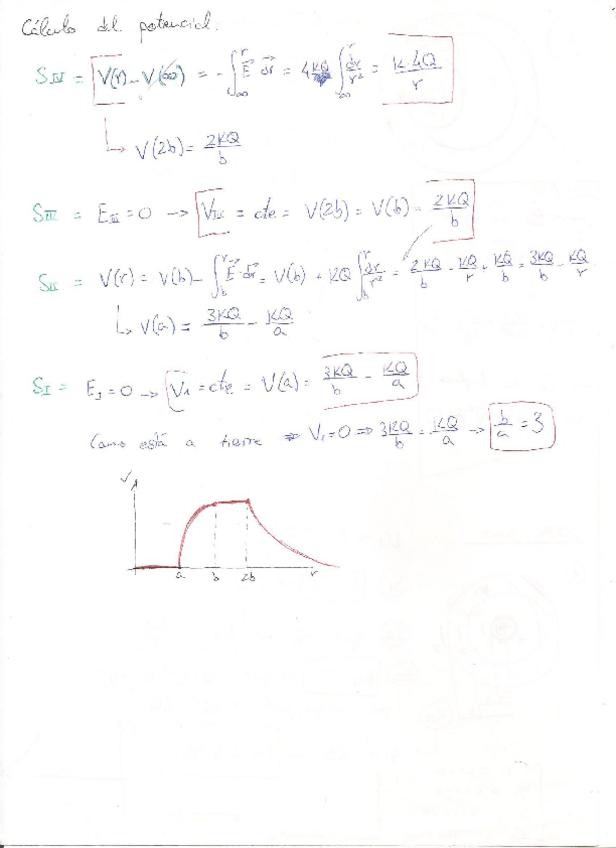 Cálculo del potencial.
S_IV = V(r) - V(∞) = - ∫_∞^r E⃗ dr⃗ = 4KQ ∫_∞^r dr/r² = K·4Q/r
↳ V(2b) = 2KQ/b
S_III = E_III = 0 → V_III = cte = V(2b) = V(b) = 2KQ/b
S_II = V(r) = V(b) - ∫_b^r E⃗ dr⃗ = V(b) + KQ ∫_b^r dr/r² = 2KQ/b - KQ/r + KQ/b = 3KQ/b - KQ/r
↳ V(a) = 3KQ/b - KQ/a
S_I = E_I = 0 → V_1 = cte = V(a) = 3KQ/b - KQ/a
Como está a tierra ⇒ V_1 = 0 ⇒ 3KQ/b = KQ/a → b/a = 3
V
a b 2b r